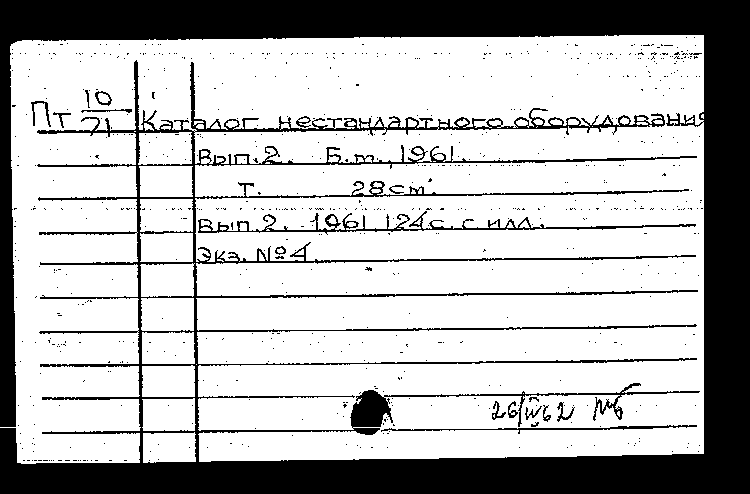 Пт 10/71 Каталог нестандартного оборудования
Вып.2. Б.м., 1961.
т. 28см.
Вып.2. 1961. 124с. с илл.
Экз. №4.
26/IV 62